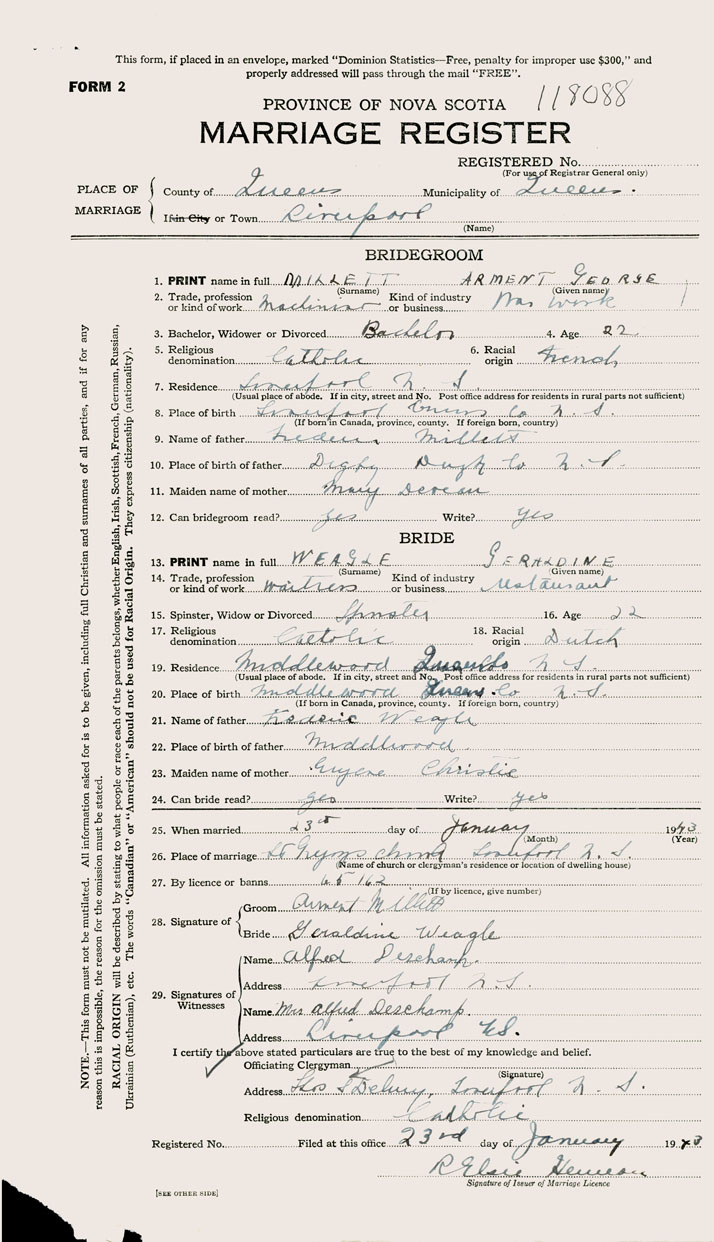 This form, if placed in an envelope, marked "Dominion Statistics—Free, penalty for improper use $300," and
properly addressed will pass through the mail "FREE".
FORM 2
PROVINCE OF NOVA SCOTIA 118088
MARRIAGE REGISTER
REGISTERED No.
(For use of Registrar General only)
PLACE OF MARRIAGE
County of Queens Municipality of Queens.
If in City or Town Liverpool
(Name)
BRIDEGROOM
1. PRINT name in full MILLETT ARMENT GEORGE
(Surname) (Given name)
2. Trade, profession or kind of work Machinist Kind of industry or business War work
3. Bachelor, Widower or Divorced Bachelor 4. Age 22
5. Religious denomination Catholic 6. Racial origin French
7. Residence Liverpool N. S.
(Usual place of abode. If in city, street and No. Post office address for residents in rural parts not sufficient)
8. Place of birth Liverpool Queens Co N. S.
(If born in Canada, province, county. If foreign born, country)
9. Name of father Millett
10. Place of birth of father Digby Digby Co N. S.
11. Maiden name of mother Mary
12. Can bridegroom read? yes Write? yes
BRIDE
13. PRINT name in full WEAGLE GERALDINE
(Surname) (Given name)
14. Trade, profession or kind of work waitress Kind of industry or business restaurant
15. Spinster, Widow or Divorced Spinster 16. Age 22
17. Religious denomination Catholic 18. Racial origin Dutch
19. Residence Middlewood N S.
(Usual place of abode. If in city, street and No. Post office address for residents in rural parts not sufficient)
20. Place of birth Middlewood Queens Co N. S.
(If born in Canada, province, county. If foreign born, country)
21. Name of father Frederic Weagle
22. Place of birth of father Middlewood
23. Maiden name of mother Christie
24. Can bride read? yes Write? yes
25. When married 23rd day of January 1943
(Month) (Year)
26. Place of marriage Liverpool N. S.
(Name of church or clergyman's residence or location of dwelling house)
27. By licence or banns 65162
(If by licence, give number)
28. Signature of
Groom Arment Millett
Bride Geraldine Weagle
29. Signatures of Witnesses
Name Alfred Deschamp.
Address Liverpool N.S.
Name Mrs Alfred Deschamp.
Address Liverpool N.S.
I certify the above stated particulars are true to the best of my knowledge and belief.
Officiating Clergyman
(Signature)
Address Liverpool N. S.
Religious denomination Catholic
Registered No. Filed at this office 23rd day of January 1943
R Elsie
Signature of Issuer of Marriage Licence
[SEE OTHER SIDE]
NOTE.—This form must not be mutilated. All information asked for is to be given, including full Christian and surnames of all parties, and if for any
reason this is impossible, the reason for the omission must be stated.
RACIAL ORIGIN will be described by stating to what people or race each of the parents belongs, whether English, Irish, Scottish, French, German, Russian,
Ukrainian (Ruthenian), etc. The words "Canadian" or "American" should not be used for Racial Origin. They express citizenship (nationality).